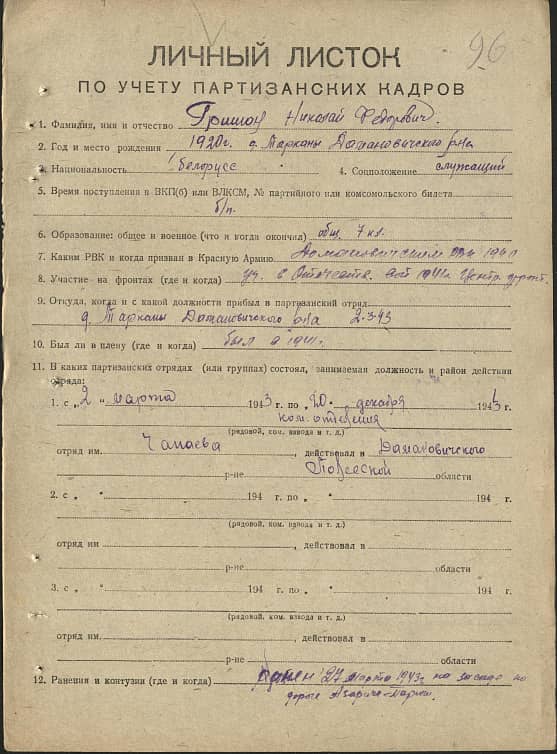 96
ЛИЧНЫЙ ЛИСТОК
ПО УЧЕТУ ПАРТИЗАНСКИХ КАДРОВ
1. Фамилия, имя и отчество Николай Федорович.
2. Год и место рождения 1920г. д. Марканы Домановичского р-на
3. Национальность белорусс 4. Соцположение служащий
5. Время поступления в ВКП(б) или ВЛКСМ, № партийного или комсомольского билета
б/п.
6. Образование: общее и военное (что и когда окончил) общ. 7 кл.
7. Каким РВК и когда призван в Красную Армию Домановичским 1940
8. Участие на фронтах (где и когда) уч. в Отечеств. 1941г. Центр. фронт.
9. Откуда, когда и с какой должности прибыл в партизанский отряд
д. Марканы Домановичского р-на 2.3.43
10. Был ли в плену (где и когда) был в 1941.
11. В каких партизанских отрядах (или группах) состоял, занимаемая должность и район действия
отряда:
1. с „2" марта 1943 г. по „20" декабря 1943 г.
ком. отделения
(рядовой, ком. взвода и т. д.)
отряд им. Чапаева, действовал в Домановичского
р-не Полесской области
2. с „ " 194 г. по „ " 194 г.
(рядовой, ком. взвода и т. д.)
отряд им , действовал в
р-не области
3. с „ " 194 г. по „ " 194 г.
(рядовой, ком. взвода и т. д.)
отряд им. , действовал в
р-не области
12. Ранения и контузии (где и когда) ранен 27 марта 1943г. на засаде по
дороге